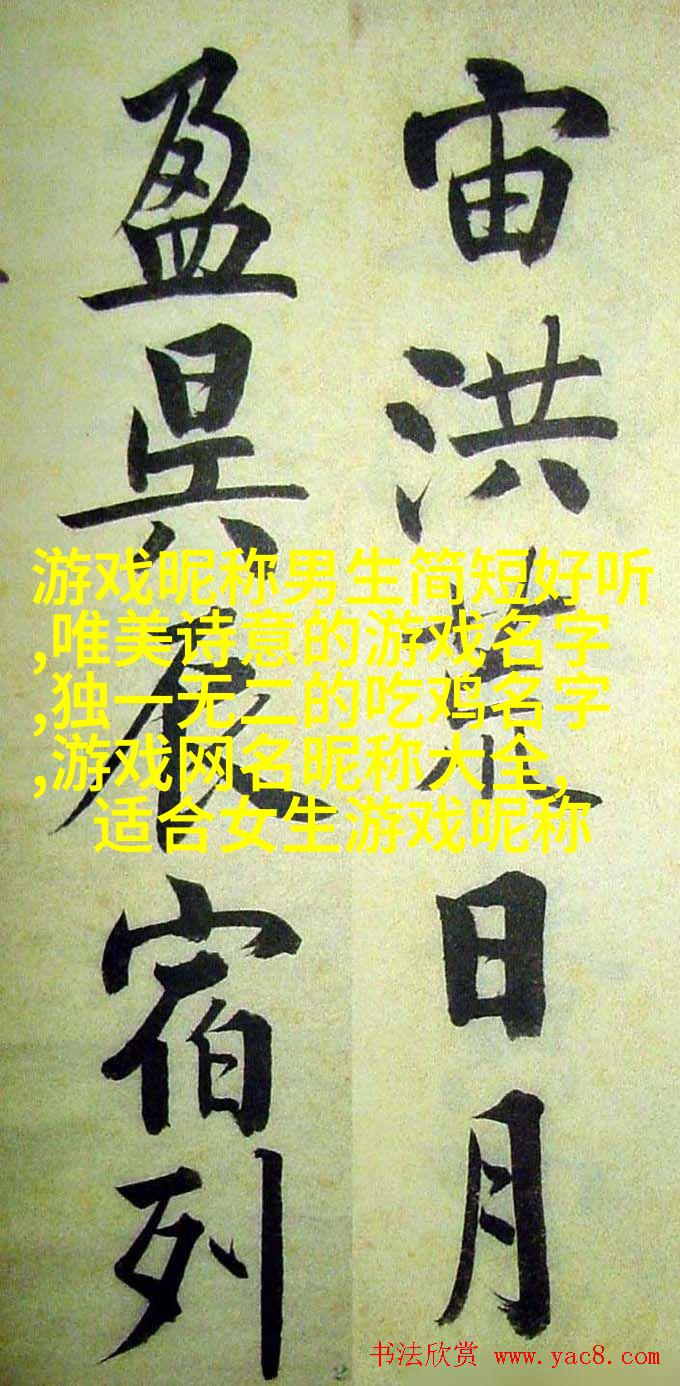 宙洪荒日月
盈昃辰宿列
游戏昵称男生简短好听
,唯美诗意的游戏名字
,独一无二的吃鸡名字
,游戏网名昵称大全,
适合女生游戏昵称
书法欣赏 www.yac8.com